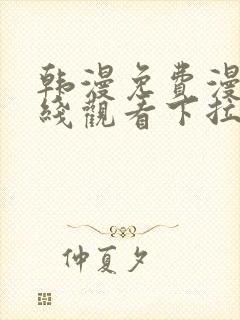 韩漫免費漫
綫觀看下拉
仲夏夕